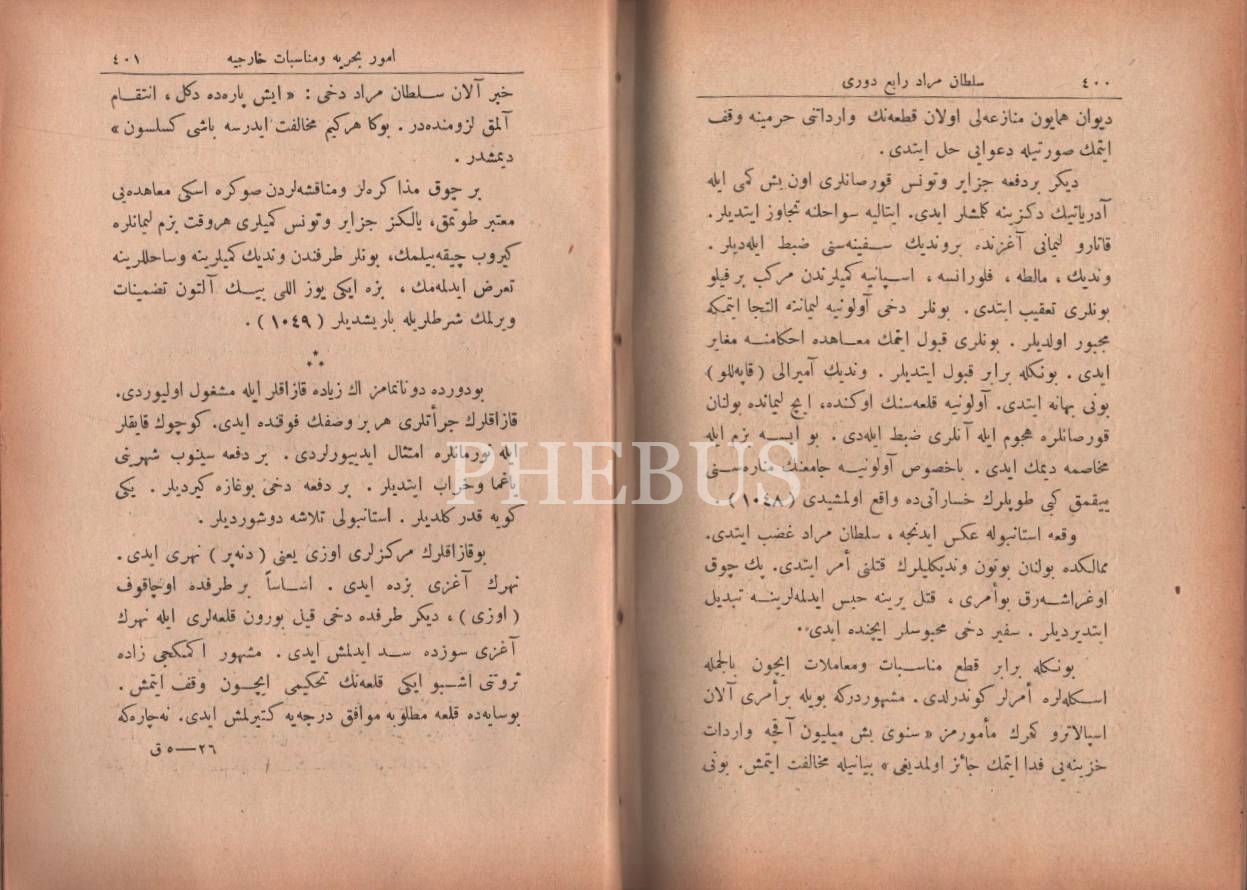 ٤٠٠
سلطان مراد رابع دورى
ديوان همايون منازعه‌لى اولان قطعه‌نك وارداتنى حرمينه وقف
ايتمك صورتيله دعوايى حل ايتدى .
ديكر بردفعه جزاير وتونس قورصانلرى اون بش كمى ايله
آدرياتيك دكزينه كلمشلر ايدى . ايتاليه سواحلنه تجاوز ايتديلر .
قاتارو ليمانى آغزنده بروندیك سفينه‌سنى ضبط ايله‌ديلر .
ونديك ، مالطه ، فلورانسه ، اسپانيه كميلرندن مركب بر فيلو
بونلرى تعقيب ايتدى . بونلر دخى آولونيه ليماننه التجا ايتمكه
مجبور اولديلر . بونلرى قبول ايتمك معاهده احكامنه مغاير
ايدى . بونكله برابر قبول ايتديلر . ونديك آميرالى ( قاپه‌للو )
بونى بهانه ايتدى . آولونيه قلعه‌سنك اوكنده ، ايچ ليمانده بولنان
قورصانلره هجوم ايله آنلرى ضبط ايله‌دى . بو ايسه بزم ايله
مخاصمه ديمك ايدى . باخصوص آولونيه جامعنك مناره‌سنى
ييقمق كبى طوپلرك خساراتى‌ده واقع اولمشيدى ( ١٠٤٨ ) .
وقعه استانبوله عكس ايدنجه ، سلطان مراد غضب ايتدى .
ممالكده بولنان بوتون ونديكليلرك قتلنى أمر ايتدى . پك چوق
اوغراشه‌رق بوأمرى ، قتل يرينه حبس ايدلمه‌لرينه تبديل
ايتديرديلر . سفير دخى محبوسلر ايچنده ايدى .
بونكله برابر قطع مناسبات ومعاملات ايچون بالجمله
اسكله‌لره أمرلر كوندرلدى . مشهوردركه بويله برأمرى آلان
اسپالاترو كمرك مأمورمز « سنوى بش ميليون آقچه واردات
خزينه‌يى فدا ايتمك جائز اولمديغى » بيانيله مخالفت ايتمش . بونى
امور بحريه ومناسبات خارجيه
٤٠١
خبر آلان سلطان مراد دخى : « ايش پاره‌ده دكل ، انتقام
آلمق لزومنده‌در . بوكا هركيم مخالفت ايدرسه باشى كسلسون »
ديمشدر .
بر چوق مذاكره‌لر ومناقشه‌لردن صوكره اسكى معاهده‌يى
معتبر طوتمق ، يالكز جزاير وتونس كميلرى هروقت بزم ليمانلره
كيروب چيقه‌بيلمك ، بونلر طرفندن ونديك كميلرينه وساحللرينه
تعرض ايدلمه‌مك ، بزه ايكى يوز اللى بيك آلتون تضمينات
ويرلمك شرطلريله باريشديلر ( ١٠٤٩ ) .
⁂
بودورده دوناناممز اك زياده قازاقلر ايله مشغول اوليوردى .
قازاقلرك جرأتلرى هربر وصفك فوقنده ايدى . كوچوك قايقلر
ايله نورمانلره امتثال ايدييورلردى . بر دفعه سينوب شهرينى
ياغما وخراب ايتديلر . بر دفعه دخى بوغازه كيرديلر . يكى
كويه قدر كلديلر . استانبولى تلاشه دوشورديلر .
بوقازاقلرك مركزلرى اوزى يعنى ( دنه‌پر ) نهرى ايدى .
نهرك آغزى بزده ايدى . اساساً بر طرفده اوجاقوف
( اوزى ) ، ديكر طرفده دخى قيل بورون قلعه‌لرى ايله نهرك
آغزى سوزده سد ايدلمش ايدى . مشهور اكمكجى زاده
ثروتنى اشبو ايكى قلعه‌نك تحكيمى ايچون وقف ايتمش .
بوسايه‌ده قلعه مطلوبه موافق درجه‌يه كتيرلمش ايدى . نه‌چاره‌كه
٢٦ — ٥ ق
PHEBUS